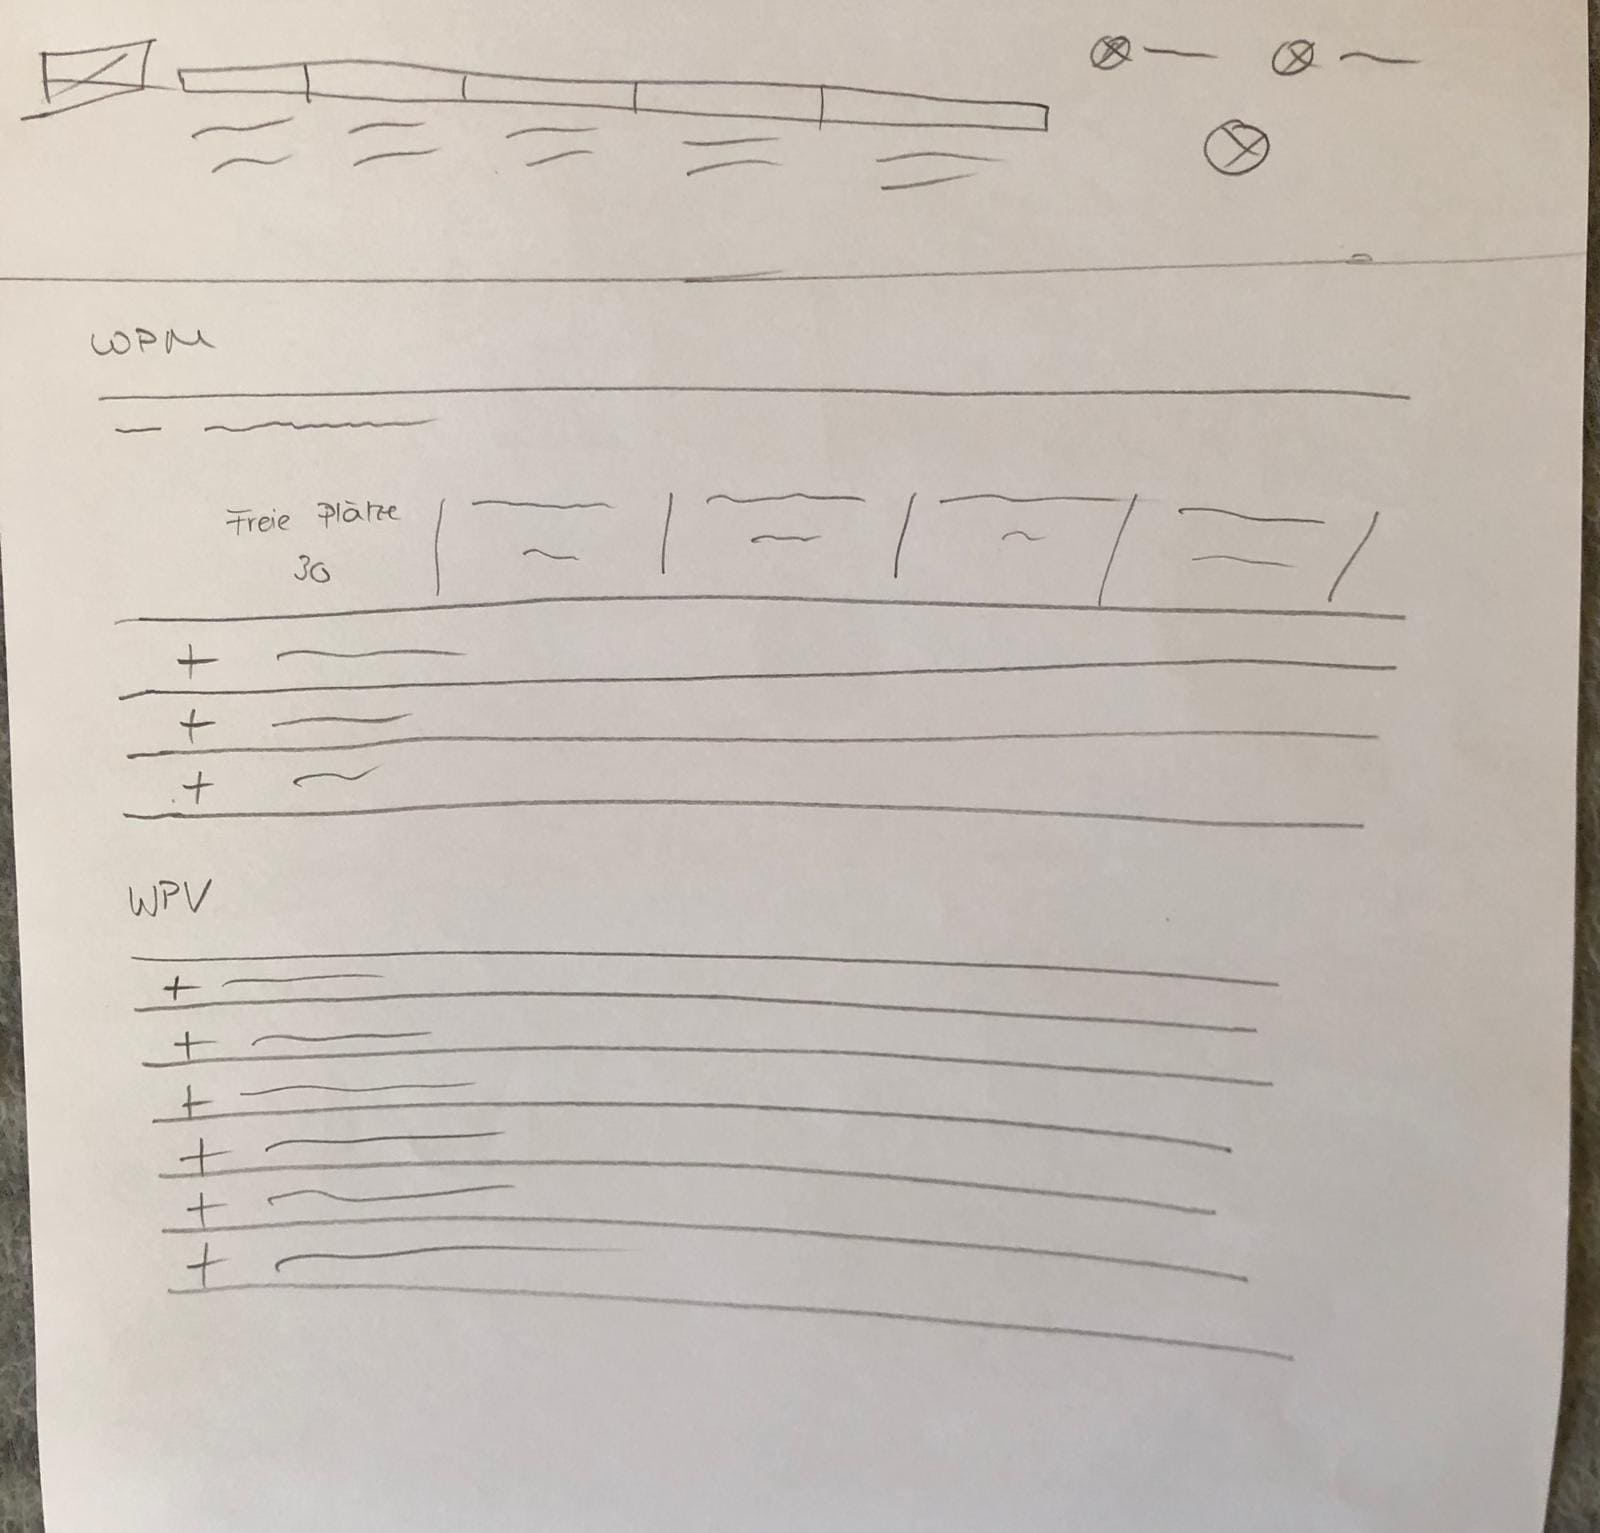 WPM
Freie Plätze
30
WPV